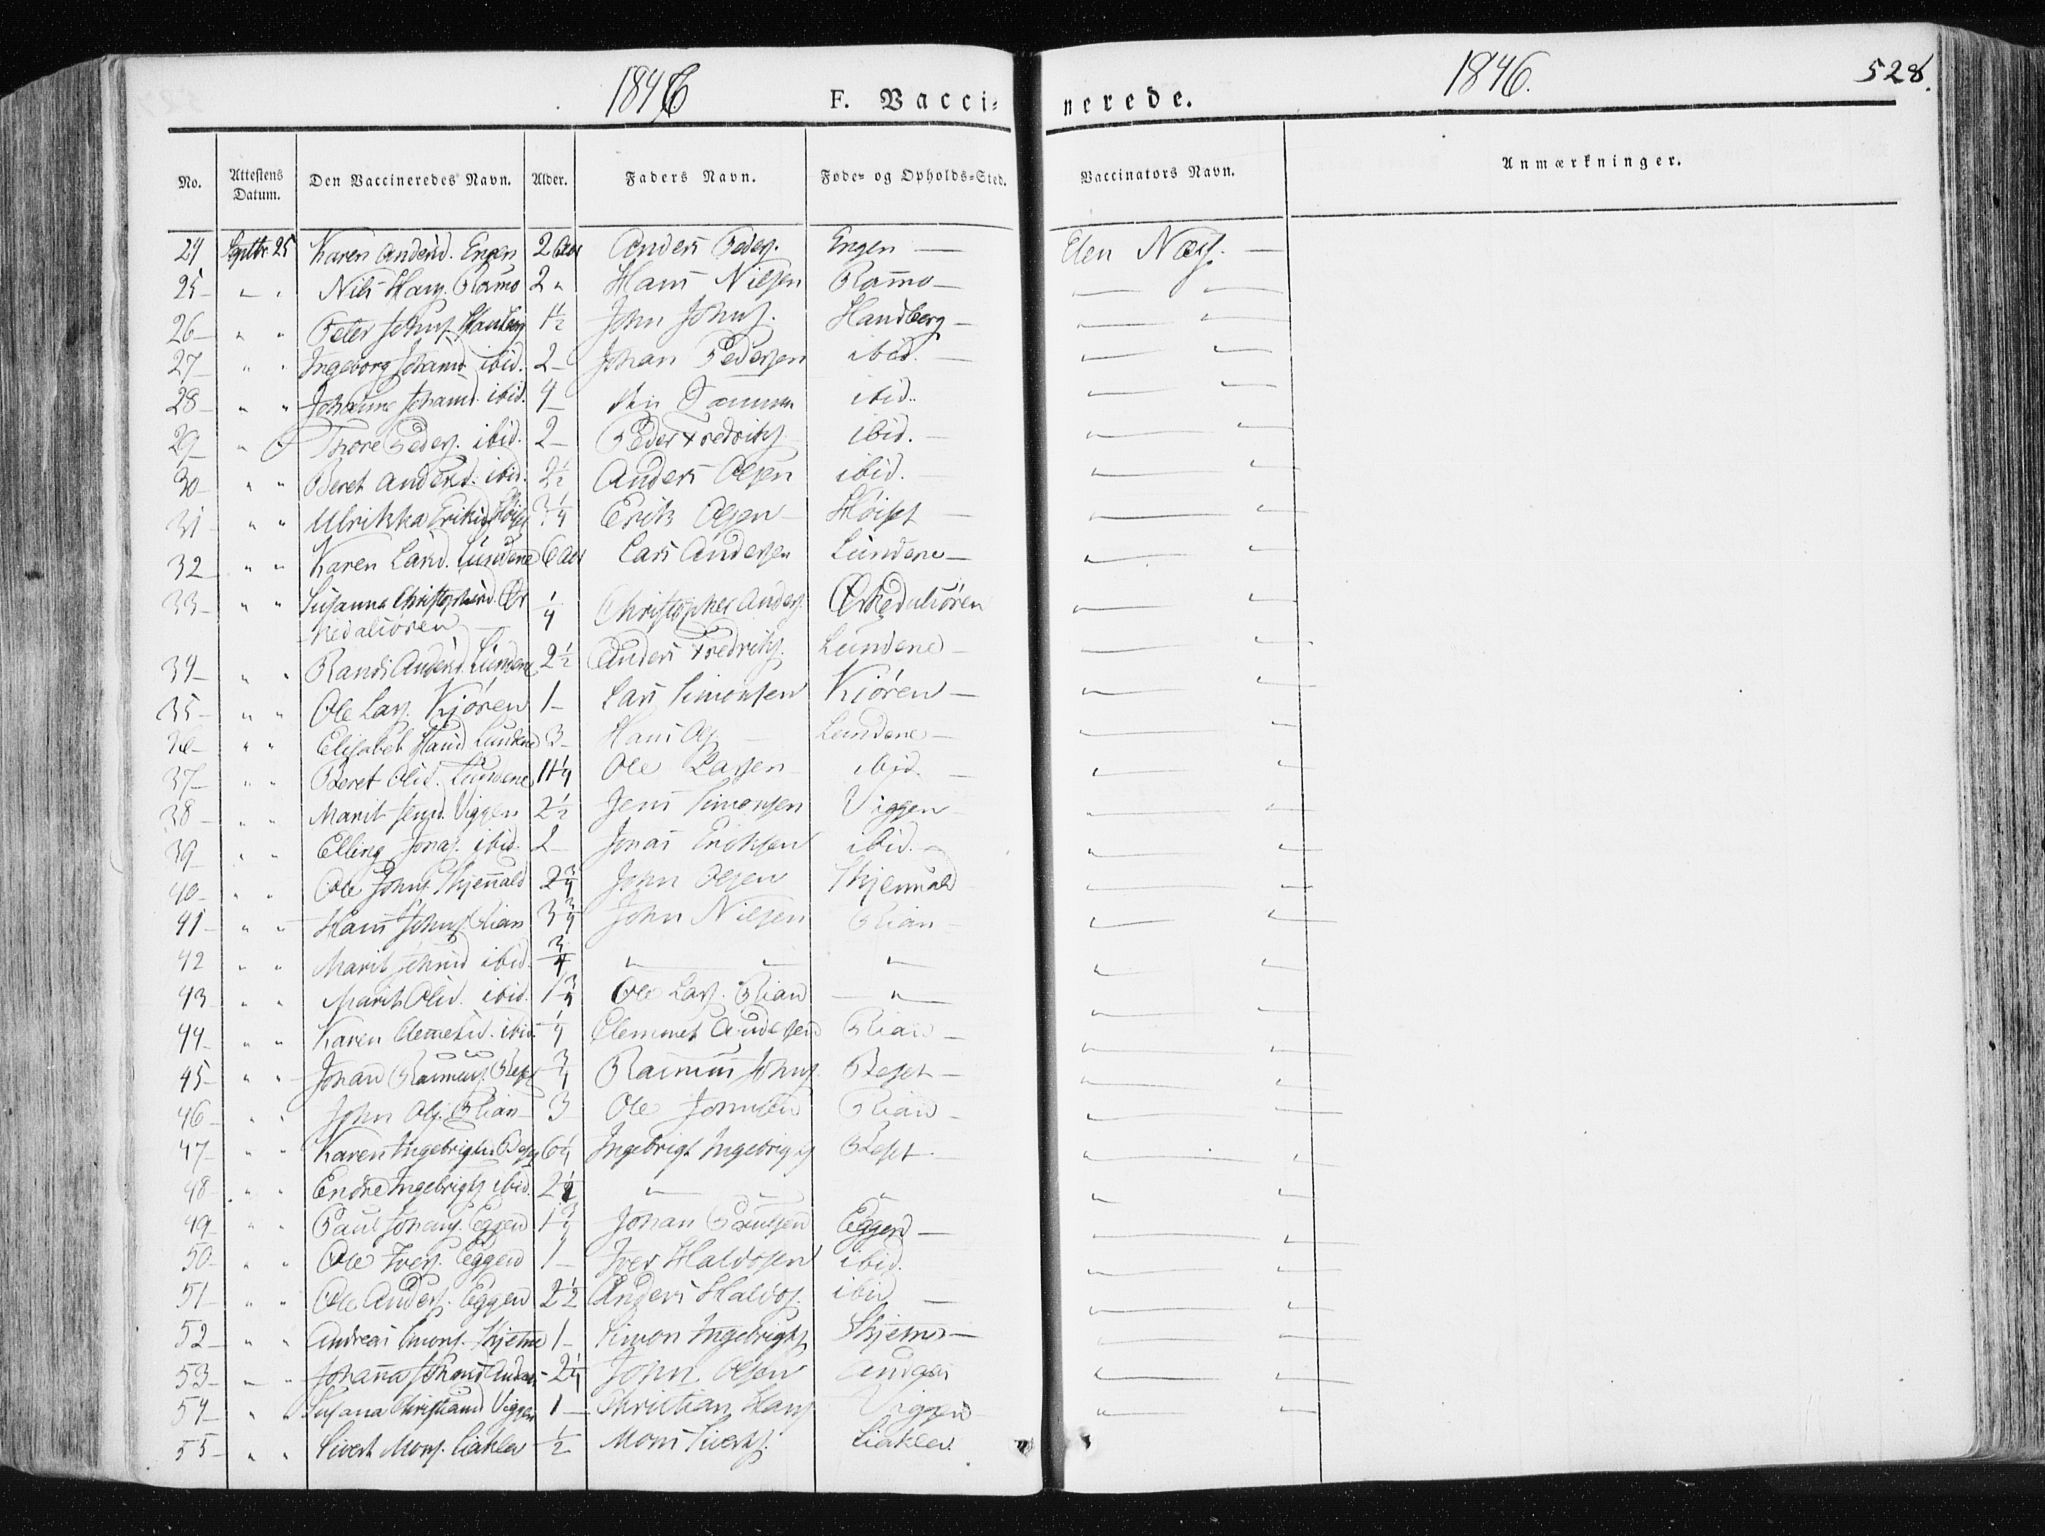 1846 F. Vaccinerede. 1846. 528.
No. Attestens Datum. Den Vaccineredes Navn. Alder. Faders Navn. Føde- og Opholds-Sted. Vaccinators Navn. Anmærkninger.
24 Septbr 25 Karen Andersd. Engen 2 Aar Anders Peders. Engen — Elen Næss. —
25 — " " Nils Hans. Ramo 2 " Hans Nilsen Ramo —
26 — " " Peter Johns. Hanberg 1½ John Johns. Handberg —
27 — " " Ingeborg Johansd ibid. 2 — Johan Pedersen ibid. —
28 — " " Johanne Johansd. ibid. 4 — ibid.
29 — " Thore Peders. ibid. 2 — Peder Fredriks. ibid. —
30 — " " Beret Andersd. ibid. 2½ Anders Olsen ibid.
31 — " " Ulrikka Eriksd Erik Olsen Höiset —
32 " " Karen Larsd. Lundene 6 Aar Lars Andersen Lundene —
33 — " " Susanna Christophersd. Ør ¼ Christopher Anders. Ørkedalsören
kedalsören
34 — " " Randi Andersd. Lundene 2½ Anders Fredriks. Lundene —
35 — " " Ole Lars. Kjören 1 — Lars Simonsen Kjören —
36 — " " Elisabet Hansd Lundene 3 — Hans Ols. — Lundene —
37 — " " Beret Olsd. Lundene Ole Larsen ibid. —
38 — " " Marit Jensd. Viggen 2½ Jens Simonsen Viggen —
39 — " " Elling Jonas. ibid. 2 — Jonas Eriksen ibid.
40 — " " Ole Johns. Skjenald 2¾ John Olsen Skjennald
41 — " " Hans Johns. Rian 3¾ John Nilsen Rian —
42 " " Marit Johnsd ibid. ¾ " " "
43 — " " Marit Olsd. ibid. 1¾ Ole Lars. Rian — " —
44 — " " Karen Clemetsd. ibid. ¼ Clemmet Andersen Rian —
45 — " " Johan Rasmus. Reset ¾ Rasmus Johns. Reset —
46 — " " John Ols. Rian 3 Ole Johnsen Rian —
47 — " " Karen Ingebrigtsd. 6¼ Ingebrigt Ingebrigts Reset —
48 — " " Endre Ingebrigts ibid. 2½ " " "
49 — " " Paul Johans. Eggen 1¾ Johan Paulsen Eggen —
50 — " " Ole Ivers. Eggen 1 — Iver Haldosen ibid.
51 — " " Ole Anders. Eggen 2½ Anders Haldos. ibid —
52 — " " Andreas Simons. Skjetne 1 — Simon Ingebrigts Skjetne —
53 — " " Johanna Johnsd 2¼ John Olsen
54 — " " Susana Christiansd Viggen 1 — Christian Hans Viggen
55 — " " Sivert Mons. Liaklev ½ Mons Siverts. Liaklev